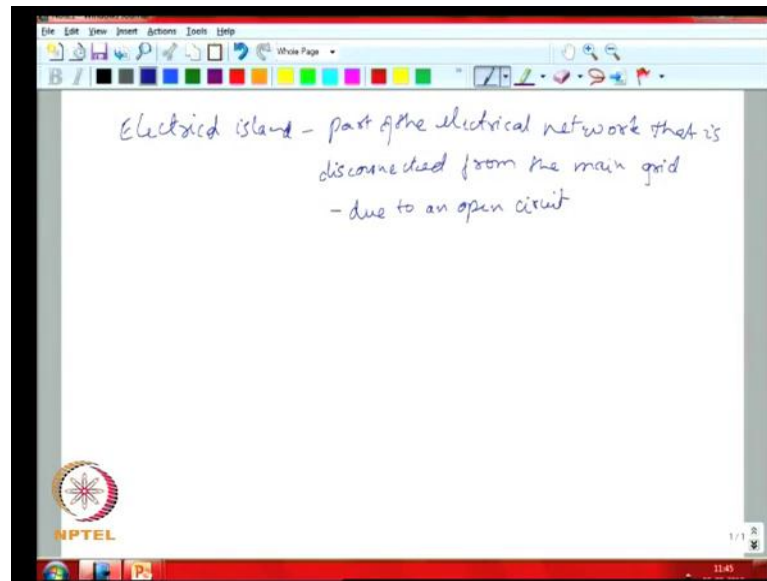 File Edit View Insert Actions Tools Help
Whole Page
B I
Electrical island - part of the electrical network that is
disconnected from the main grid
- due to an open circuit
NPTEL
1/1
11:45